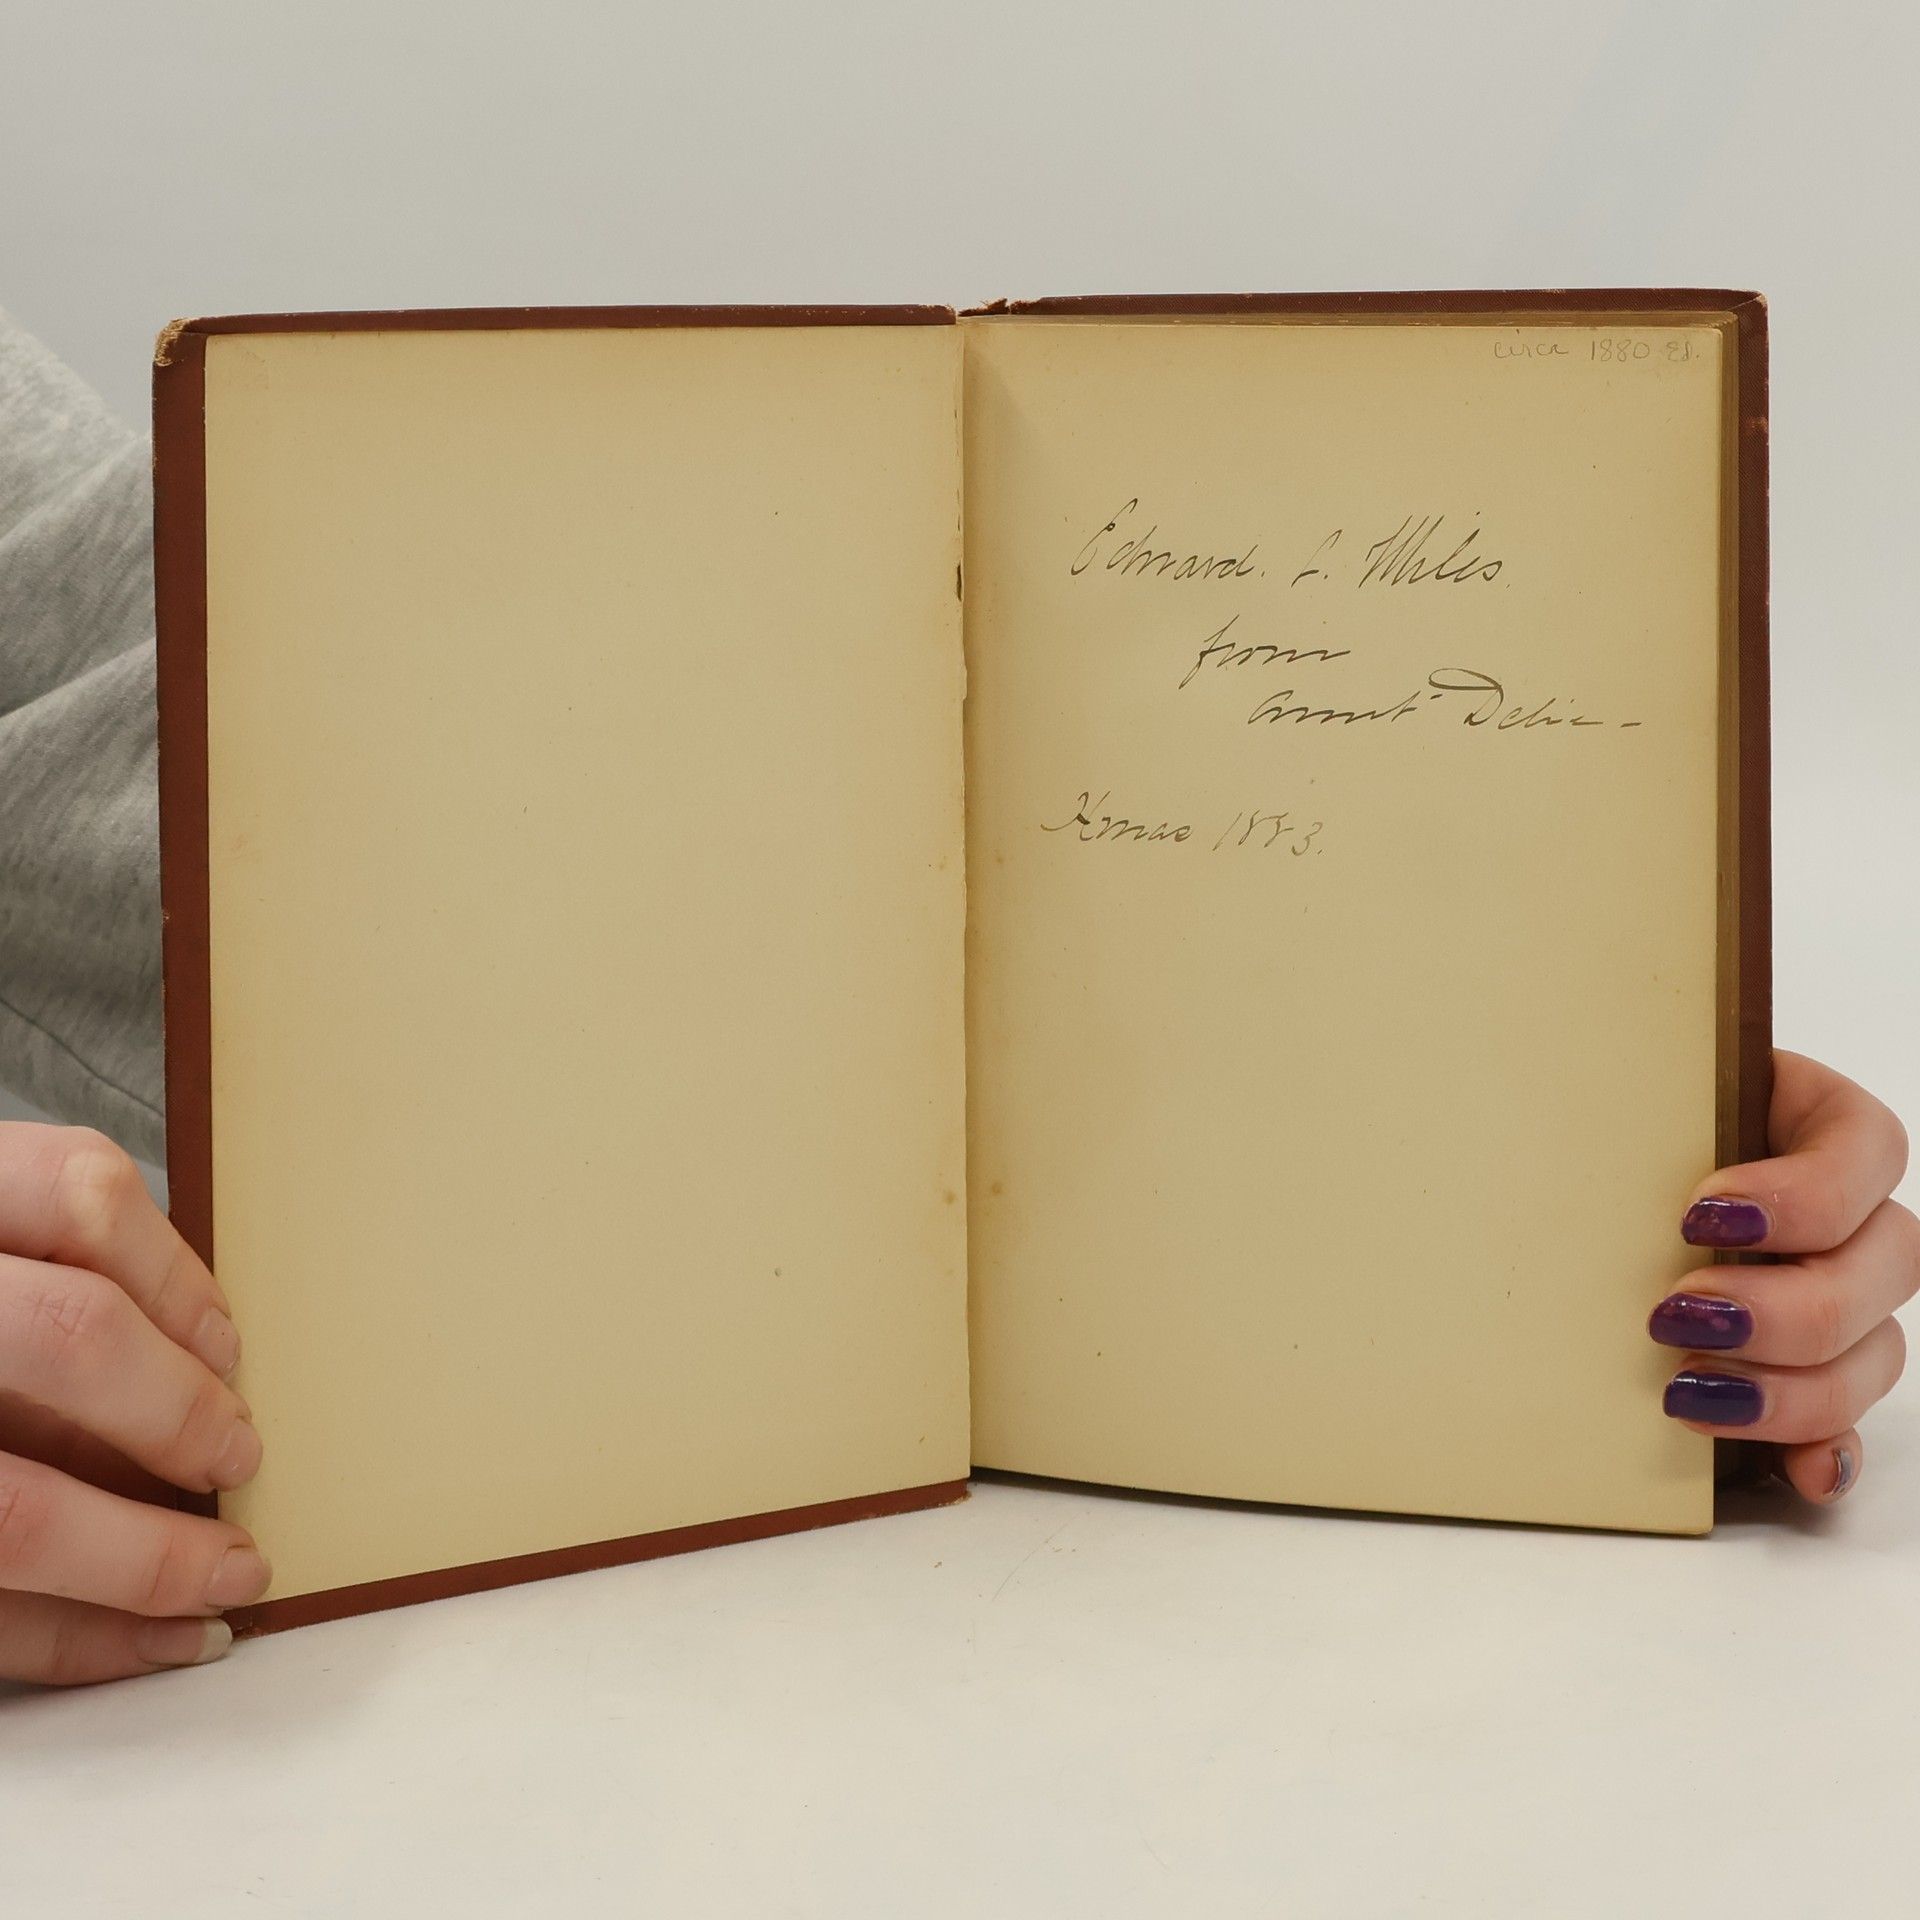 circa 1880 Ed.
Edward. L. Miles.
from
Aunt Delia -
Xmas 1883.